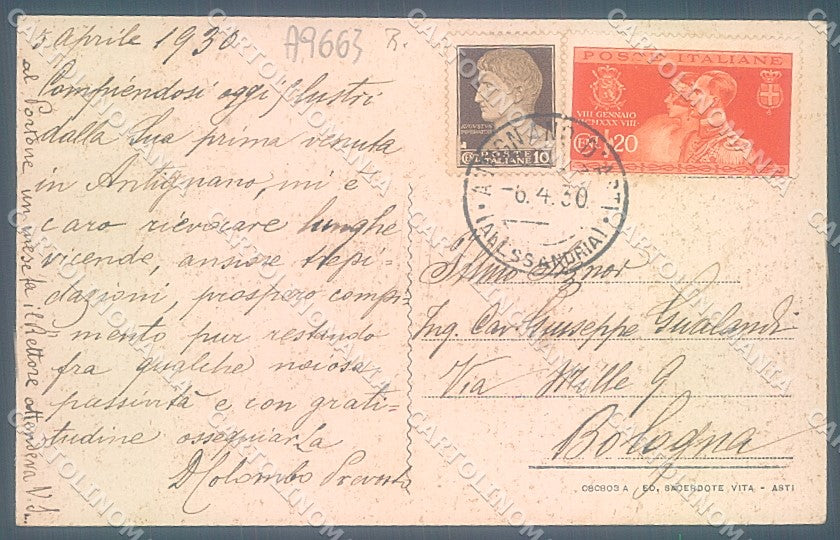 5 aprile 1930
A9663 R.
Compiendosi oggi 7 lustri
dalla Sua prima venuta
in Antignano, mi è
caro rievocare lunghe
vicende, ansiose trepi-
dazioni, prospero compi-
mento pur restando
fra qualche noiosa
passività e con grati-
tudine ossequiarLa
D Colombo Prevosto
al Portone un mese fa il Rettore attendeva V. S.
AUGUSTVS
IMPERATOR
CENT. POSTE ITALIANE 10
POSTE ITALIANE
VIII GENNAIO
MCMXXX·VIII
CENT 20
ANTIGNANO D'ASTI
-6.4.30
(ALESSANDRIA)
Ill.mo Signor
Ing. Cav. Giuseppe Gualandi
Via Mille 9
Bologna
C8C803A ED. SACERDOTE VITA - ASTI
CARTOLINOMANIA